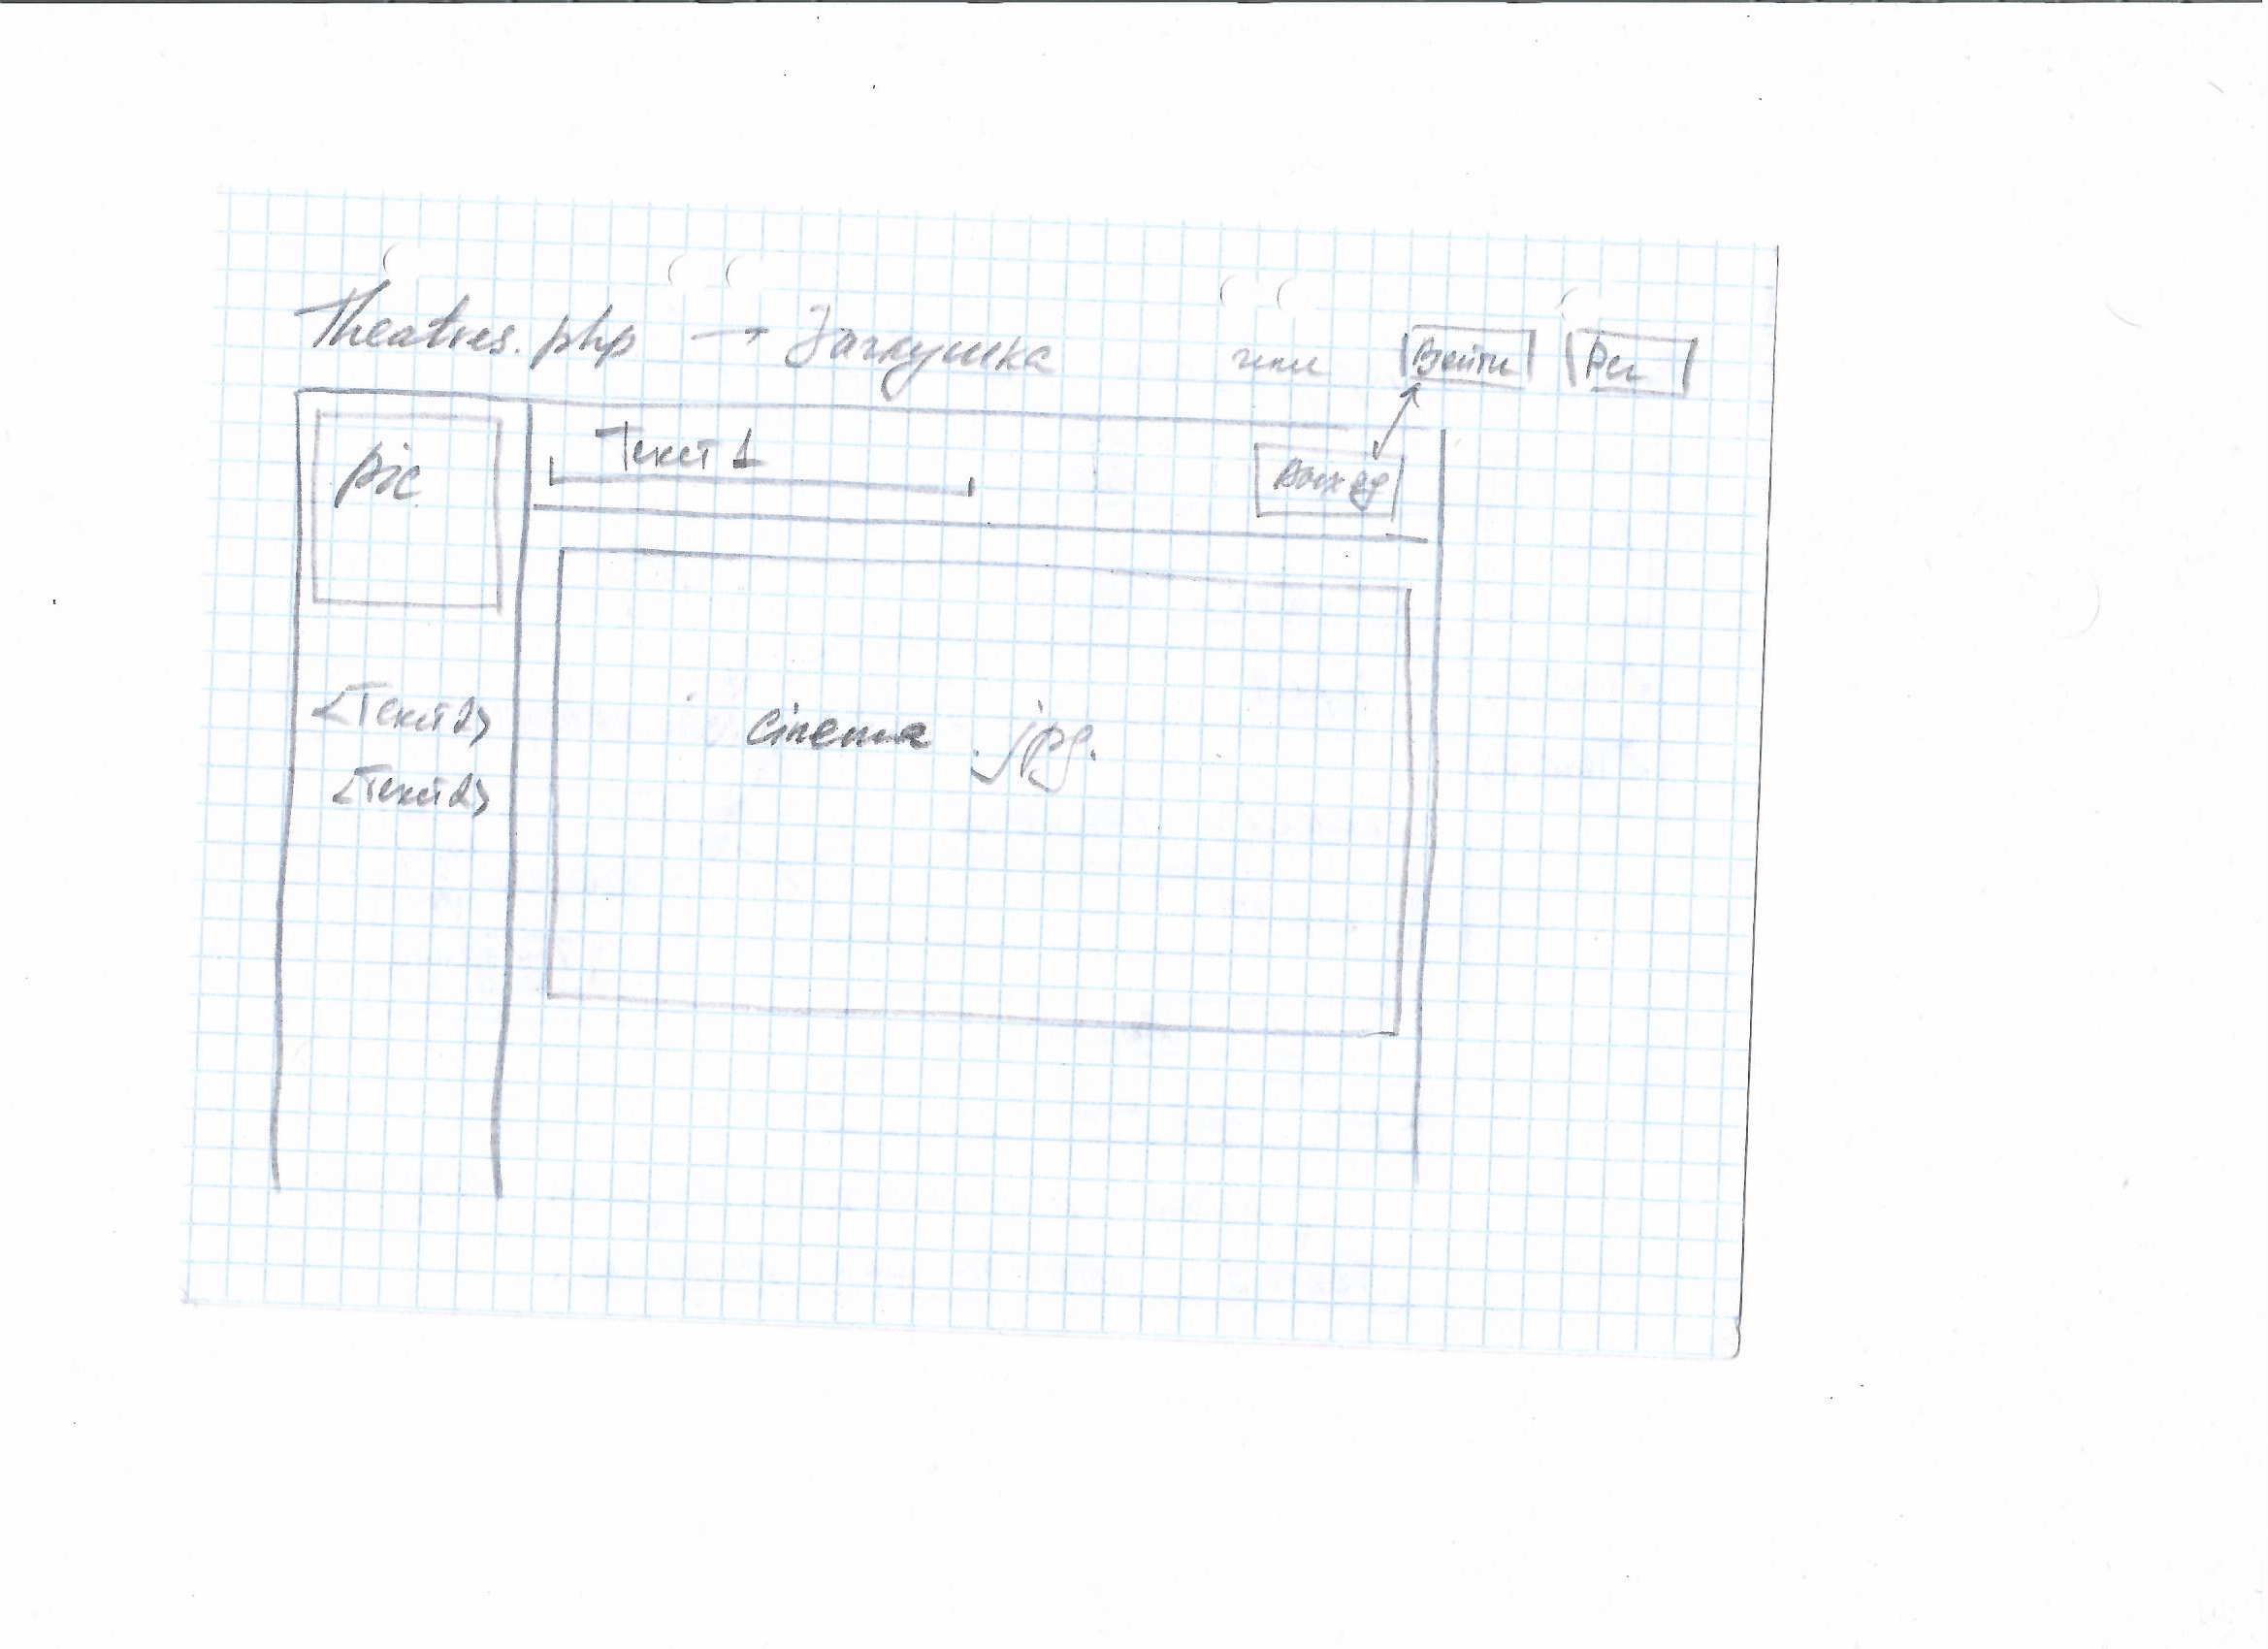 Theatres.php → Заглушка
или Войти Рег
pic
Текст 1
Выход
<Текст2>
<Текст2>
cinema .jpg.